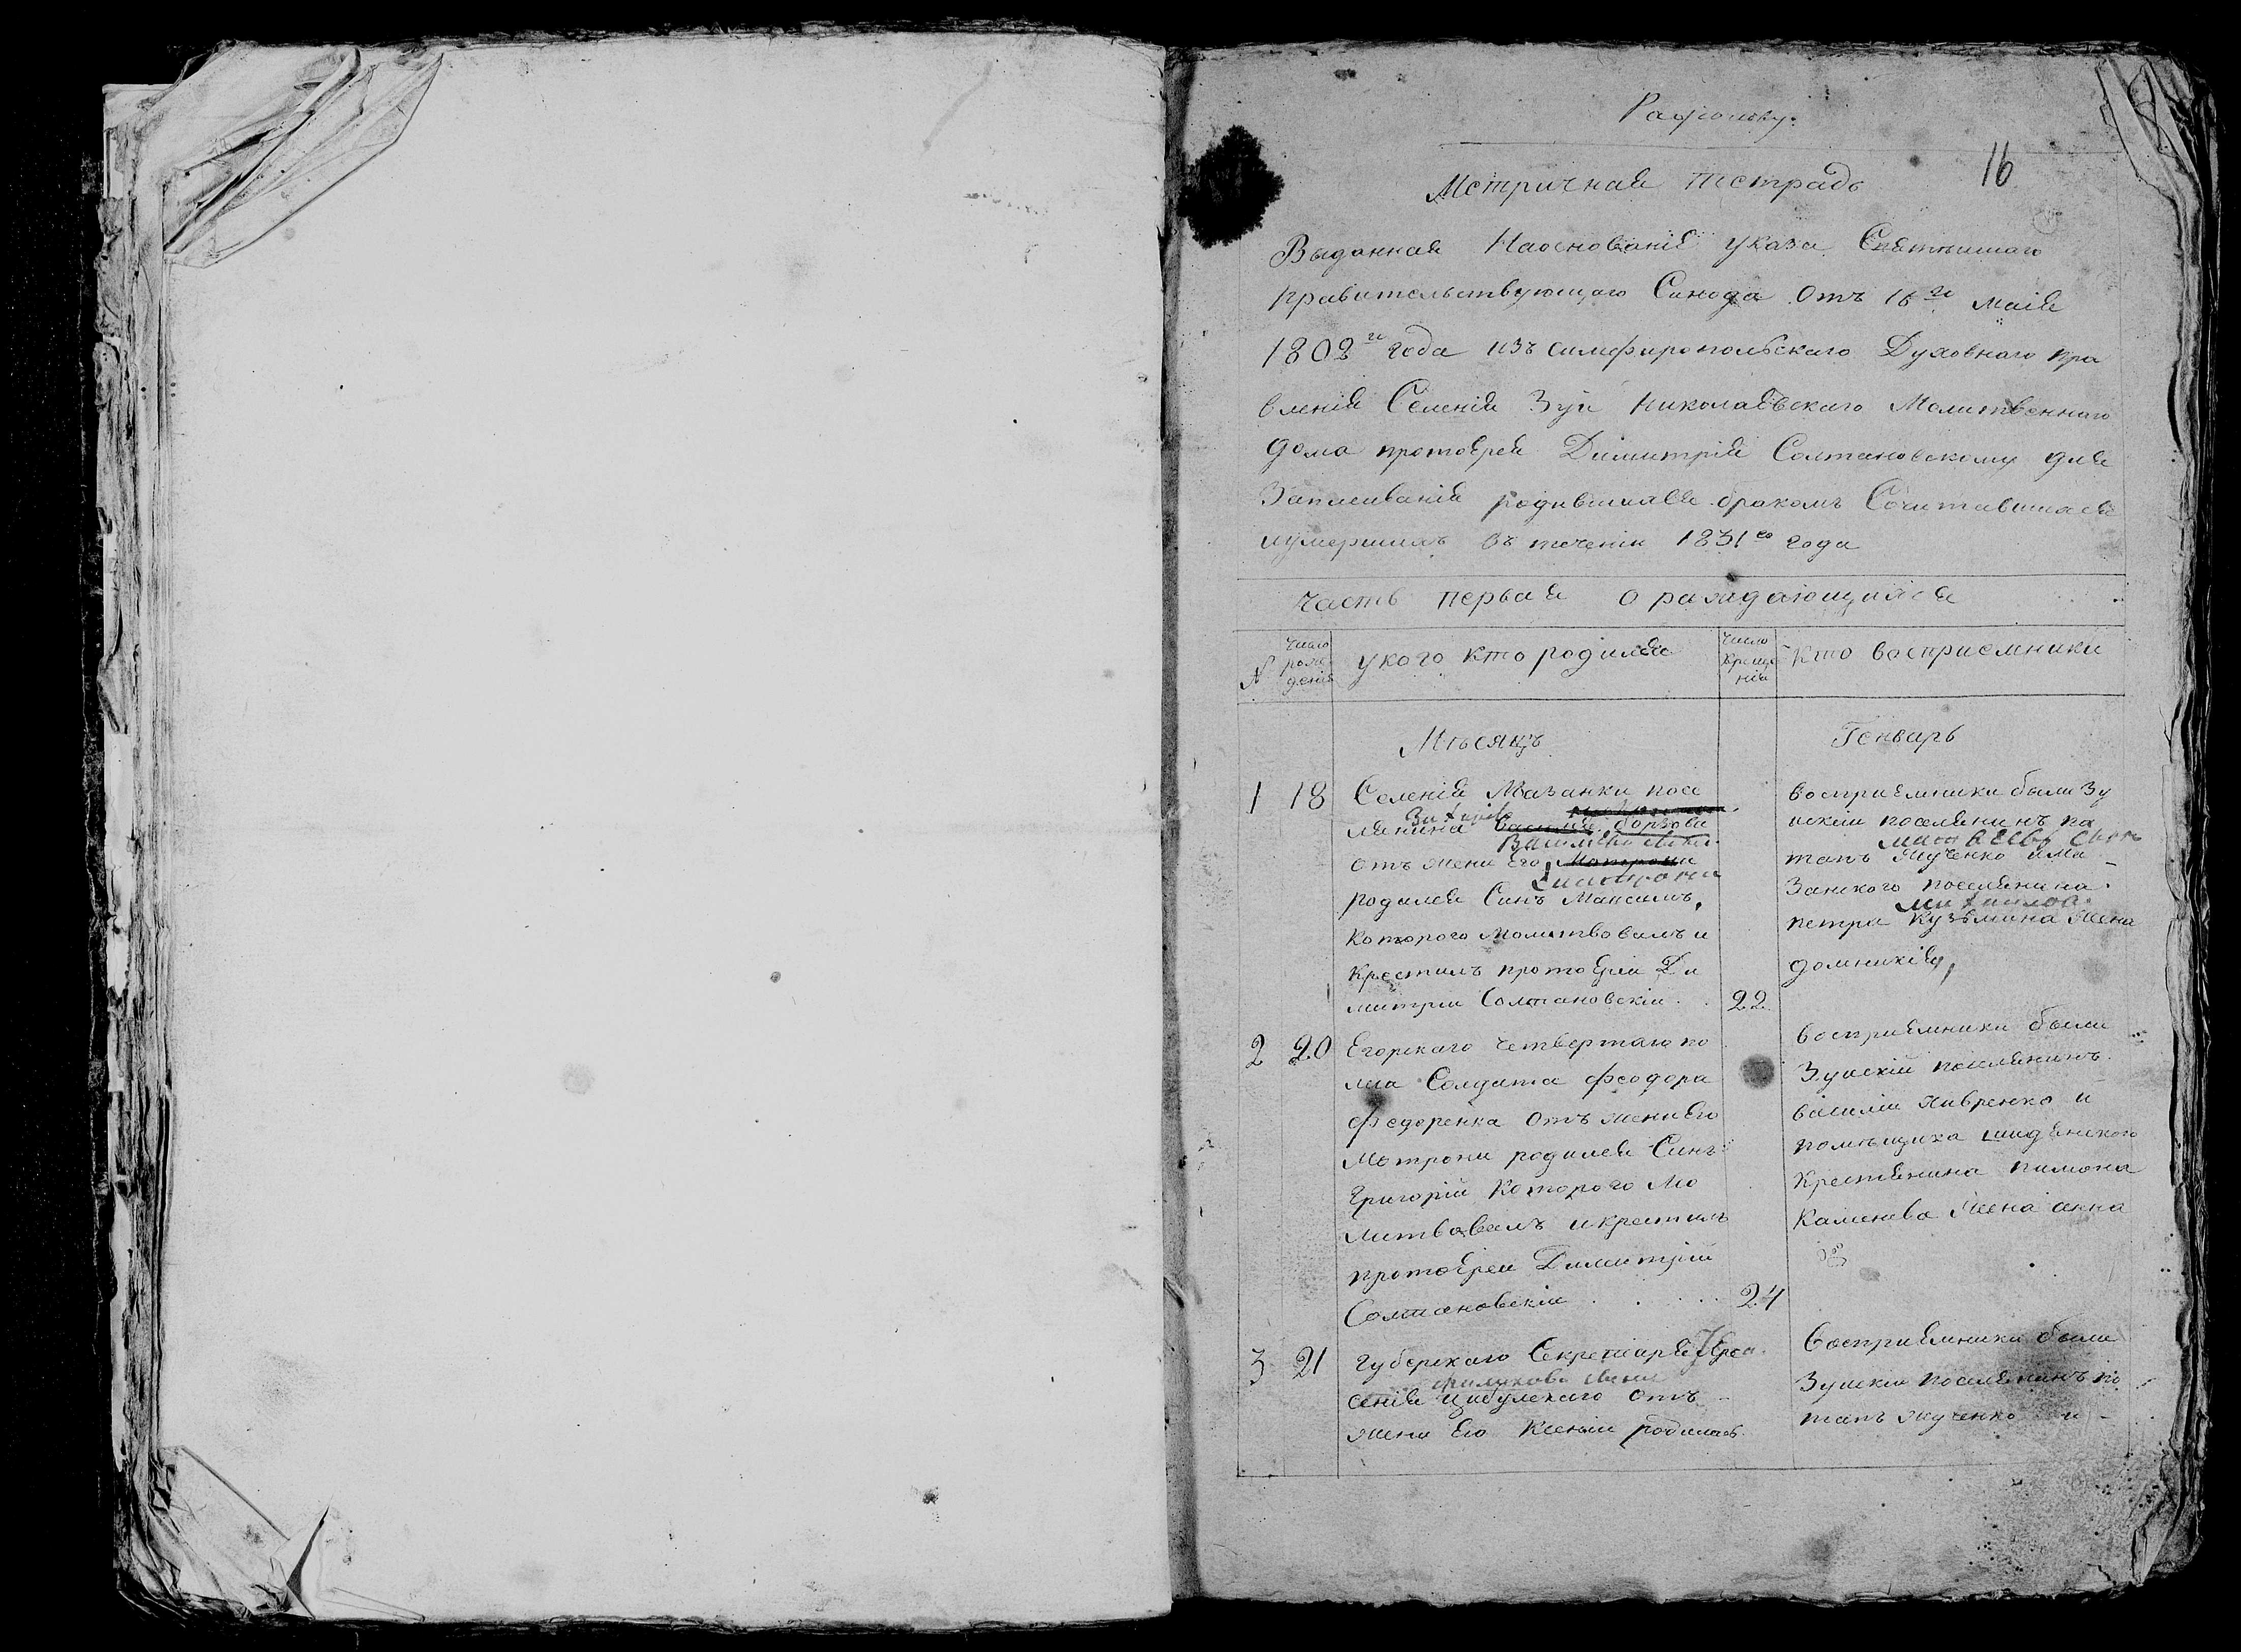 16
Метричная тетрадь
Выданная Наоснованіе указа Святѣишаго
правительствующаго Синода отъ 16го маія
1802го года изъ симферопольскаго Духовнаго пра
вленія Селенія Зуи Николаевскаго Молитвеннаго
дома протоерея Димитрія Солтановскому для
Записиванія родившихся бракомъ Сочитавшихся
иумершихъ въ теченіи 1831го года
часть первая о раждающихся
N Число рожденія укого кто родился Число крещенія кто восприемники
Мѣсяцъ Генварь
1 18 Селенія Мазанки посе
лянина
отъ жени Его
родился Синъ Максимъ,
которого Молитвовалъ и
крестилъ протоерeи Ди
митрии Солтановскіи 22
восприемники были Зу
искіи поселянинъ па
тапъ Яцченко има
занского поселянина
михаилова
петра Кузьмина жена
домникія,
2 20 Егорскаго четвертаго по
лка Солдата феодора
федоренка отъ жени Его
Мотрони родился Синъ
Григорій которого Мо
литвовалъ и крестилъ
протоереи Димитрій
Солтановскіи 24
восприемники были
Зуискій поселянинъ
василіи Лавренко и
помѣщика
Крестянина пимона
Каменева жена анна
3 21 губерскаго Секретаря
сенія Цибулскаго отъ
жени Его Ксеніи родилась
восприемники были
Зуискіи поселянинъ по
тапъ Яцченко и